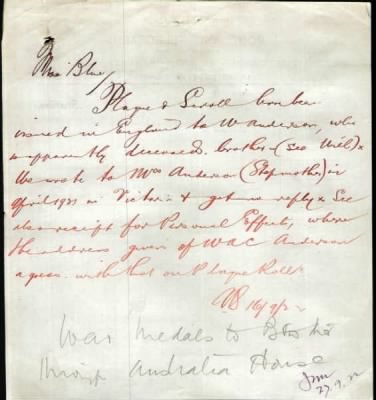 Miss Blue/
Plaque & Scroll can be
issued in England to W Anderson, who
is apparently deceased brother (see Will) x
We wrote to Mrs Anderson (Stepmother) in
April 1921 in Victoria & got no reply x See
also receipt for Personal Effects, where
the address given of WAC Anderson
agrees with that on Plaque Roll
16/9/22
War Medals to Brother
through Australia House
27.9.22